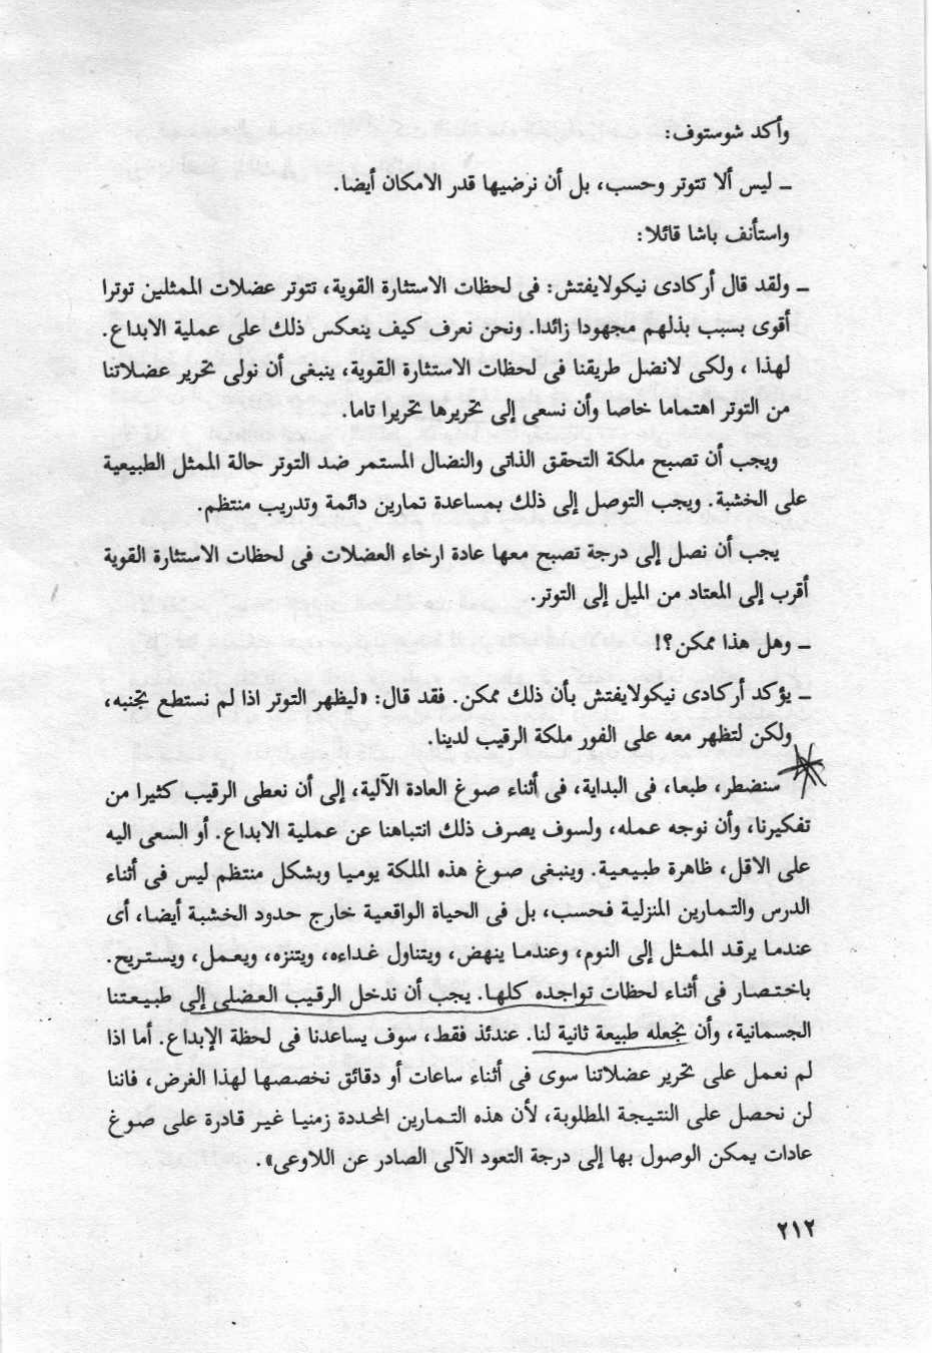 وأكد شوستوف:
ـ ليس ألا تتوتر وحسب، بل أن نرضيها قدر الامكان أيضا.
واستأنف باشا قائلا:
ـ ولقد قال أركادى نيكولايفتش: فى لحظات الاستثارة القوية، تتوتر عضلات الممثلين توترا
أقوى بسبب بذلهم مجهودا زائدا. ونحن نعرف كيف ينعكس ذلك على عملية الابداع.
لهذا ، ولكى لانضل طريقنا فى لحظات الاستثارة القوية، ينبغى أن نولى تحرير عضلاتنا
من التوتر اهتماما خاصا وأن نسعى إلى تحريرها تحريرا تاما.
ويجب أن تصبح ملكة التحقق الذاتى والنضال المستمر ضد التوتر حالة الممثل الطبيعية
على الخشبة. ويجب التوصل إلى ذلك بمساعدة تمارين دائمة وتدريب منتظم.
يجب أن نصل إلى درجة تصبح معها عادة ارخاء العضلات فى لحظات الاستثارة القوية
أقرب إلى المعتاد من الميل إلى التوتر.
ـ وهل هذا ممكن؟!
ـ يؤكد أركادى نيكولايفتش بأن ذلك ممكن. فقد قال: «ليظهر التوتر اذا لم نستطع تجنبه،
ولكن لتظهر معه على الفور ملكة الرقيب لدينا.
سنضطر، طبعا، فى البداية، فى أثناء صوغ العادة الآلية، إلى أن نعطى الرقيب كثيرا من
تفكيرنا، وأن نوجه عمله، ولسوف يصرف ذلك انتباهنا عن عملية الابداع. أو السعى اليه
على الاقل، ظاهرة طبيعية. وينبغى صوغ هذه الملكة يوميا وبشكل منتظم ليس فى أثناء
الدرس والتمارين المنزلية فحسب، بل فى الحياة الواقعية خارج حدود الخشبة أيضا، أى
عندما يرقد الممثل إلى النوم، وعندما ينهض، ويتناول غداءه، ويتنزه، ويعمل، ويستريح.
باختصار فى أثناء لحظات تواجده كلها. يجب أن ندخل الرقيب العضلى إلى طبيعتنا
الجسمانية، وأن نجعله طبيعة ثانية لنا. عندئذ فقط، سوف يساعدنا فى لحظة الإبداع. أما اذا
لم نعمل على تحرير عضلاتنا سوى فى أثناء ساعات أو دقائق نخصصها لهذا الغرض، فاننا
لن نحصل على النتيجة المطلوبة، لأن هذه التمارين المحددة زمنيا غير قادرة على صوغ
عادات يمكن الوصول بها إلى درجة التعود الآلى الصادر عن اللاوعى».
٢١٢